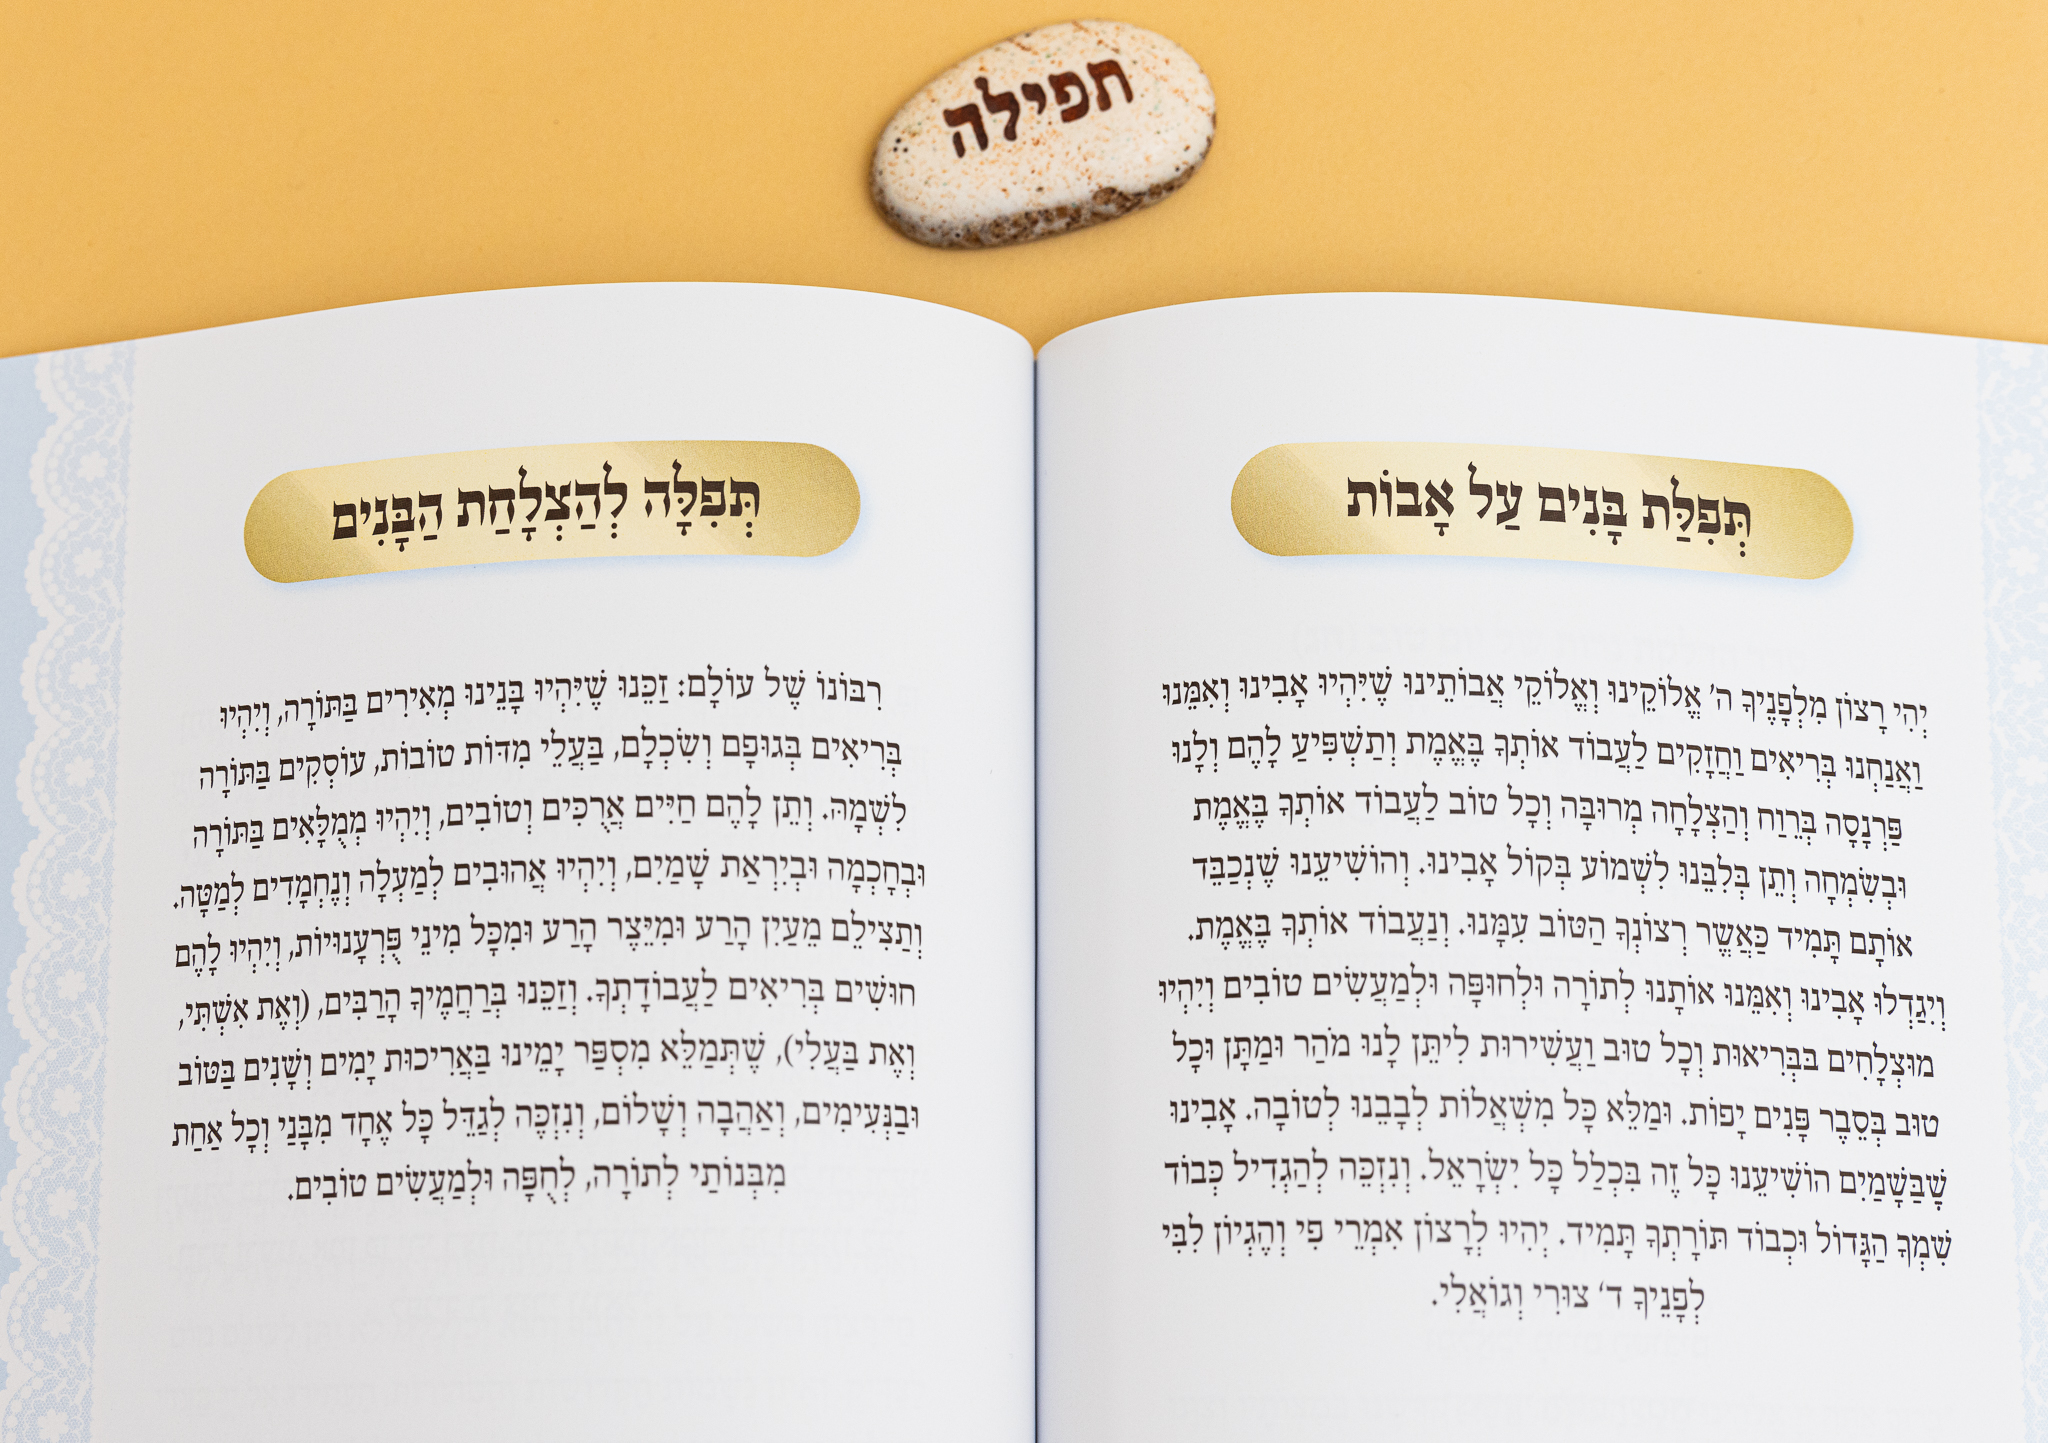 תפילה
תְּפִלַּת בָּנִים עַל אָבוֹת
יְהִי רָצוֹן מִלְפָנֶיךָ ה' אֱלוֹקֵינוּ וְאֱלוֹקֵי אֲבוֹתֵינוּ שֶׁיִּהְיוּ אָבִינוּ וְאִמֵּנוּ
וַאֲנַחְנוּ בְּרִיאִים וַחֲזָקִים לַעֲבוֹד אוֹתְךָ בֶּאֱמֶת וְתַשְׁפִּיעַ לָהֶם וְלָנוּ
פַּרְנָסָה בְּרֶוַח וְהַצְלָחָה מְרוּבָּה וְכָל טוֹב לַעֲבוֹד אוֹתְךָ בֶּאֱמֶת
וּבְשִׂמְחָה וְתֵן בְּלִבֵּנוּ לִשְׁמוֹעַ בְּקוֹל אָבִינוּ. וְהוֹשִׁיעֵנוּ שֶׁנְכַבֵּד
אוֹתָם תָּמִיד כַּאֲשֶׁר רְצוֹנְךָ הַטּוֹב עִמָּנוּ. וְנַעֲבוֹד אוֹתְךָ בֶּאֱמֶת.
וִיגַדְלוּ אָבִינוּ וְאִמֵּנוּ אוֹתָנוּ לְתוֹרָה וּלְחוּפָּה וּלְמַעֲשִׂים טוֹבִים וְיִהְיוּ
מוּצְלָחִים בִּבְּרִיאוּת וְכָל טוּב וַעֲשִׁירוּת לִיתֵּן לָנוּ מֹהַר וּמַתָּן וּכָל
טוּב בְּסֵבֶר פָּנִים יָפוֹת. וּמַלֵּא כָּל מִשְׁאֲלוֹת לְבָבֵנוּ לְטוֹבָה. אָבִינוּ
שֶׁבַּשָּׁמַיִם הוֹשִׁיעֵנוּ כָּל זֶה בִּכְלַל כָּל יִשְׂרָאֵל. וְנִזְכֶּה לְהַגְדִיל כְּבוֹד
שִׁמְךָ הַגָּדוֹל וּכְבוֹד תּוֹרָתְךָ תָּמִיד. יְהִיוּ לְרָצוֹן אִמְרֵי פִי וְהֶגְיוֹן לִבִּי
לְפָנֵיךָ ד' צוּרִי וְגוֹאֲלִי.
תְּפִלָּה לְהַצְלָחַת הַבָּנִים
רִבּוֹנוֹ שֶׁל עוֹלָם: זַכֵּנוּ שֶׁיִּהְיוּ בָּנֵינוּ מְאִירִים בַּתּוֹרָה, וְיִהְיוּ
בְּרִיאִים בְּגוּפָם וְשִׂכְלָם, בַּעֲלֵי מִדּוֹת טוֹבוֹת, עוֹסְקִים בַּתּוֹרָה
לִשְׁמָהּ. וְתֵן לָהֶם חַיִּים אֲרֻכִּים וְטוֹבִים, וְיִהְיוּ מְמֻלָּאִים בַּתּוֹרָה
וּבְחָכְמָה וּבְיִרְאַת שָׁמַיִם, וְיִהְיוּ אֲהוּבִים לְמַעְלָה וְנֶחְמָדִים לְמַטָּה.
וְתַצִילֵם מֵעַיִן הָרַע וּמִיֵּצֶר הָרַע וּמִכָּל מִינֵי פֻּרְעָנוּיוֹת, וְיִהְיוּ לָהֶם
חוּשִׁים בְּרִיאִים לַעֲבוֹדָתְךָ. וְזַכֵּנוּ בְּרַחֲמֶיךָ הָרַבִּים, (וְאֶת אִשְׁתִּי,
וְאֶת בַּעֲלִי), שֶׁתְּמַלֵּא מִסְפַּר יָמֵינוּ בַּאֲרִיכוּת יָמִים וְשָׁנִים בַּטּוֹב
וּבַנְּעִימִים, וְאַהֲבָה וְשָׁלוֹם, וְנִזְכֶּה לְגַדֵּל כָּל אֶחָד מִבָּנַי וְכָל אַחַת
מִבְּנוֹתַי לְתוֹרָה, לְחֻפָּה וּלְמַעֲשִׂים טוֹבִים.